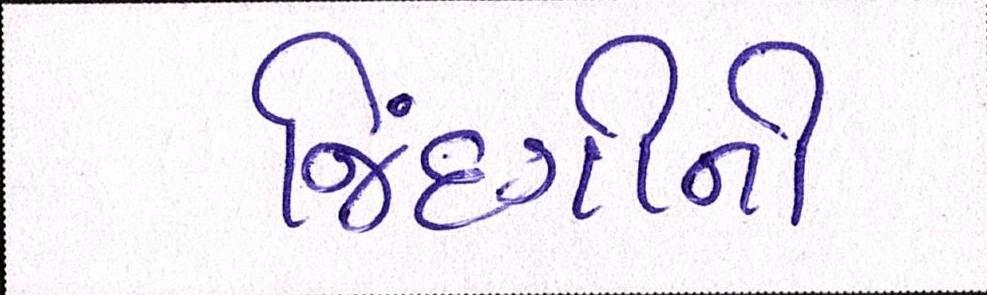 જિંદગીની